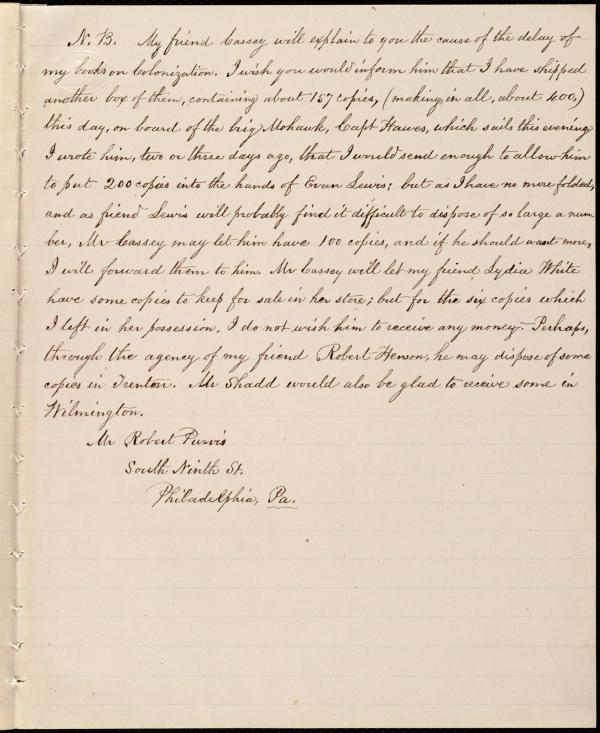 N. B. My friend Cassey will explain to you the cause of the delay of
my books on Colonization. I wish you would inform him that I have shipped
another box of them, containing about 157 copies, (making, in all, about 400,)
this day, on board of the brig Mohawk, Capt Hawes, which sails this evening.
I wrote him, two or three days ago, that I would send enough to allow him
to put 200 copies into the hands of Evan Lewis; but as I have no more folded,
and as friend Lewis will probably find it difficult to dispose of so large a num
ber, Mr Cassey may let him have 100 copies, and if he should want more,
I will forward them to him. Mr Cassey will let my friend Lydia White
have some copies to keep for sale in her store; but for the six copies which
I left in her possession, I do not wish him to receive any money. Perhaps,
through the agency of my friend Robert Henson, he may dispose of some
copies in Trenton. Mr Shadd would also be glad to receive some in
Wilmington.
Mr Robert Purvis
South Ninth St.
Philadelphia, Pa.